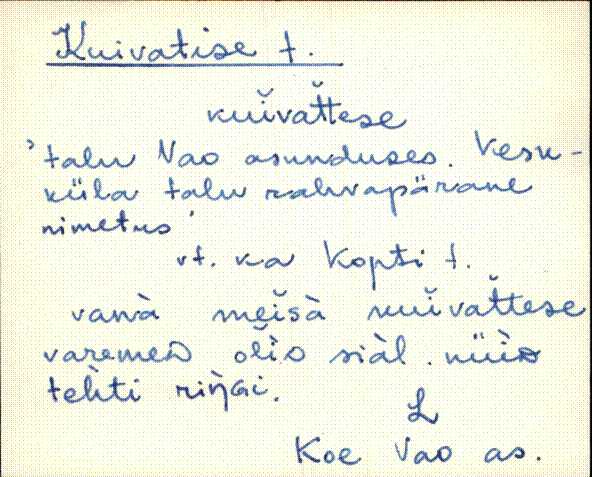 Kuivatise t.
kuĭvat̆tese
'talu Vao asunduses. Kesk-
küla talu rahvapärane
nimetus'
vt. ka Kopti t.
vanà meĭsà kuĭvat̆tese
varemeD olìD siàl. nüiD
tehti riŋGi.
L
Koe Vao as.